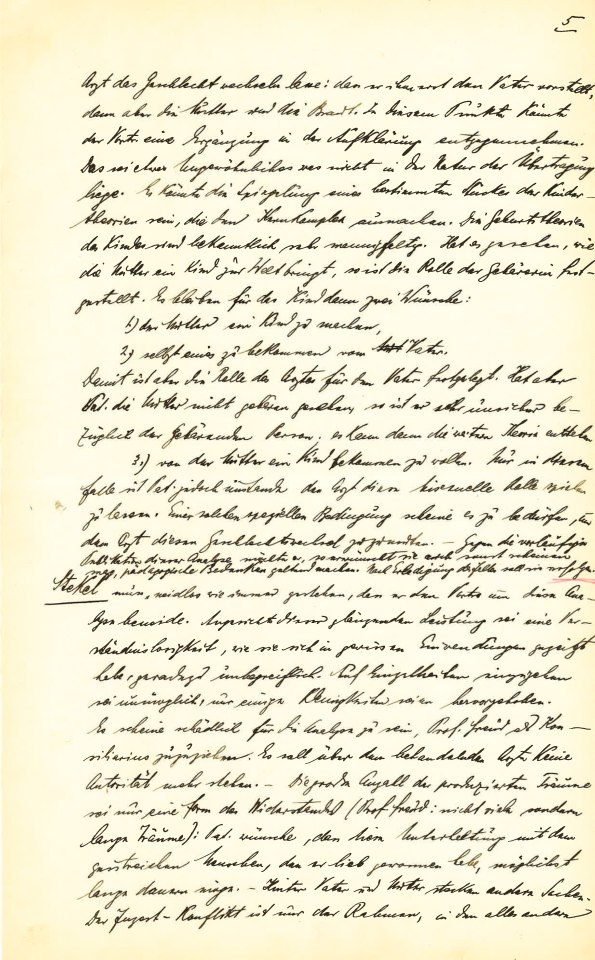 5
Arzt das Geschlecht wechseln lasse: dass er ihm erst den Vater vorstellt,
dann aber die Mutter und die Braut. In diesem Punkte könnte
der Vortr. eine Ergänzung in der Aufklärung entgegennehmen.
Das sei etwas Ungewöhnliches was nicht in der Natur der Übertragung
liege. Es könnte die Spiegelung eines bestimmten Stückes der Kinder-
theorien sein, die den Kernkomplex ausmachen. Die Geburtstheorien
des Kindes sind bekanntlich sehr mannigfaltig. Hat es gesehen, wie
die Mutter ein Kind zur Welt bringt, so ist die Rolle der Gebärerin fest-
gestellt. Es bleiben für das Kind dann zwei Wünsche:
1.) der Mutter ein Kind zu machen,
2.) selbst eines zu bekommen vom Vater.
Damit ist aber die Rolle des Arztes für den Vater festgelegt. Hat aber
Pat. die Mutter nicht gebären gesehen, so ist er sehr unsicher be-
züglich der gebärenden Person. es kann dann die weitere Theorie entstehen
3.) von der Mutter ein Kind bekommen zu wollen. Nur in diesem
falle ist Pat. jedoch imstande den Arzt diese bisexuelle Rolle spielen
zu lassen. Einer solchen speziellen Bedingung scheine es zu bedürfen, um
dem Arzt diesen Geschlechtswechsel zuzumuten. — Gegen die vorläufige
Publikation dieser Analyse möchte er, so erwünscht sie auch sonst scheinen
mag, pädagogische Bedenken geltend machen. Nach Erledigung derselben soll sie erfolgen.
Stekel
muss, neidlos wie immer gestehen, dass er den Vortr. um diese Ana-
lyse beneide. Angesichts dieser glänzenden Leistung sei eine Ver-
ständnislosigkeit, wie sie sich in gewissen Einwendungen gezeigt
habe, geradezu unbegreiflich. Auf Einzelheiten einzugehen
sei unmöglich, nur einige Kleinigkeiten seien hervorgehoben.
Es scheine schädlich für die Analyse zu sein, Prof. Freud als Kon-
siliarius zuzuziehen. Es soll über dem behandelnden Arzte keine
Autorität mehr stehen. — Die grosse Anzahl der produzierten Träume
sei nur eine form des Widerstandes (Prof. Freud: nicht viele sondern
lange Träume): Pat. wünsche, dass diese Unterhaltung mit dem
geistreichen Menschen, den er lieb gewonnen habe, möglichst
lange dauern möge. — Hinter Vater und Mutter stecken andere Sachen.
Der Inzest-Konflikt ist nur der Rahmen, in den alles andere